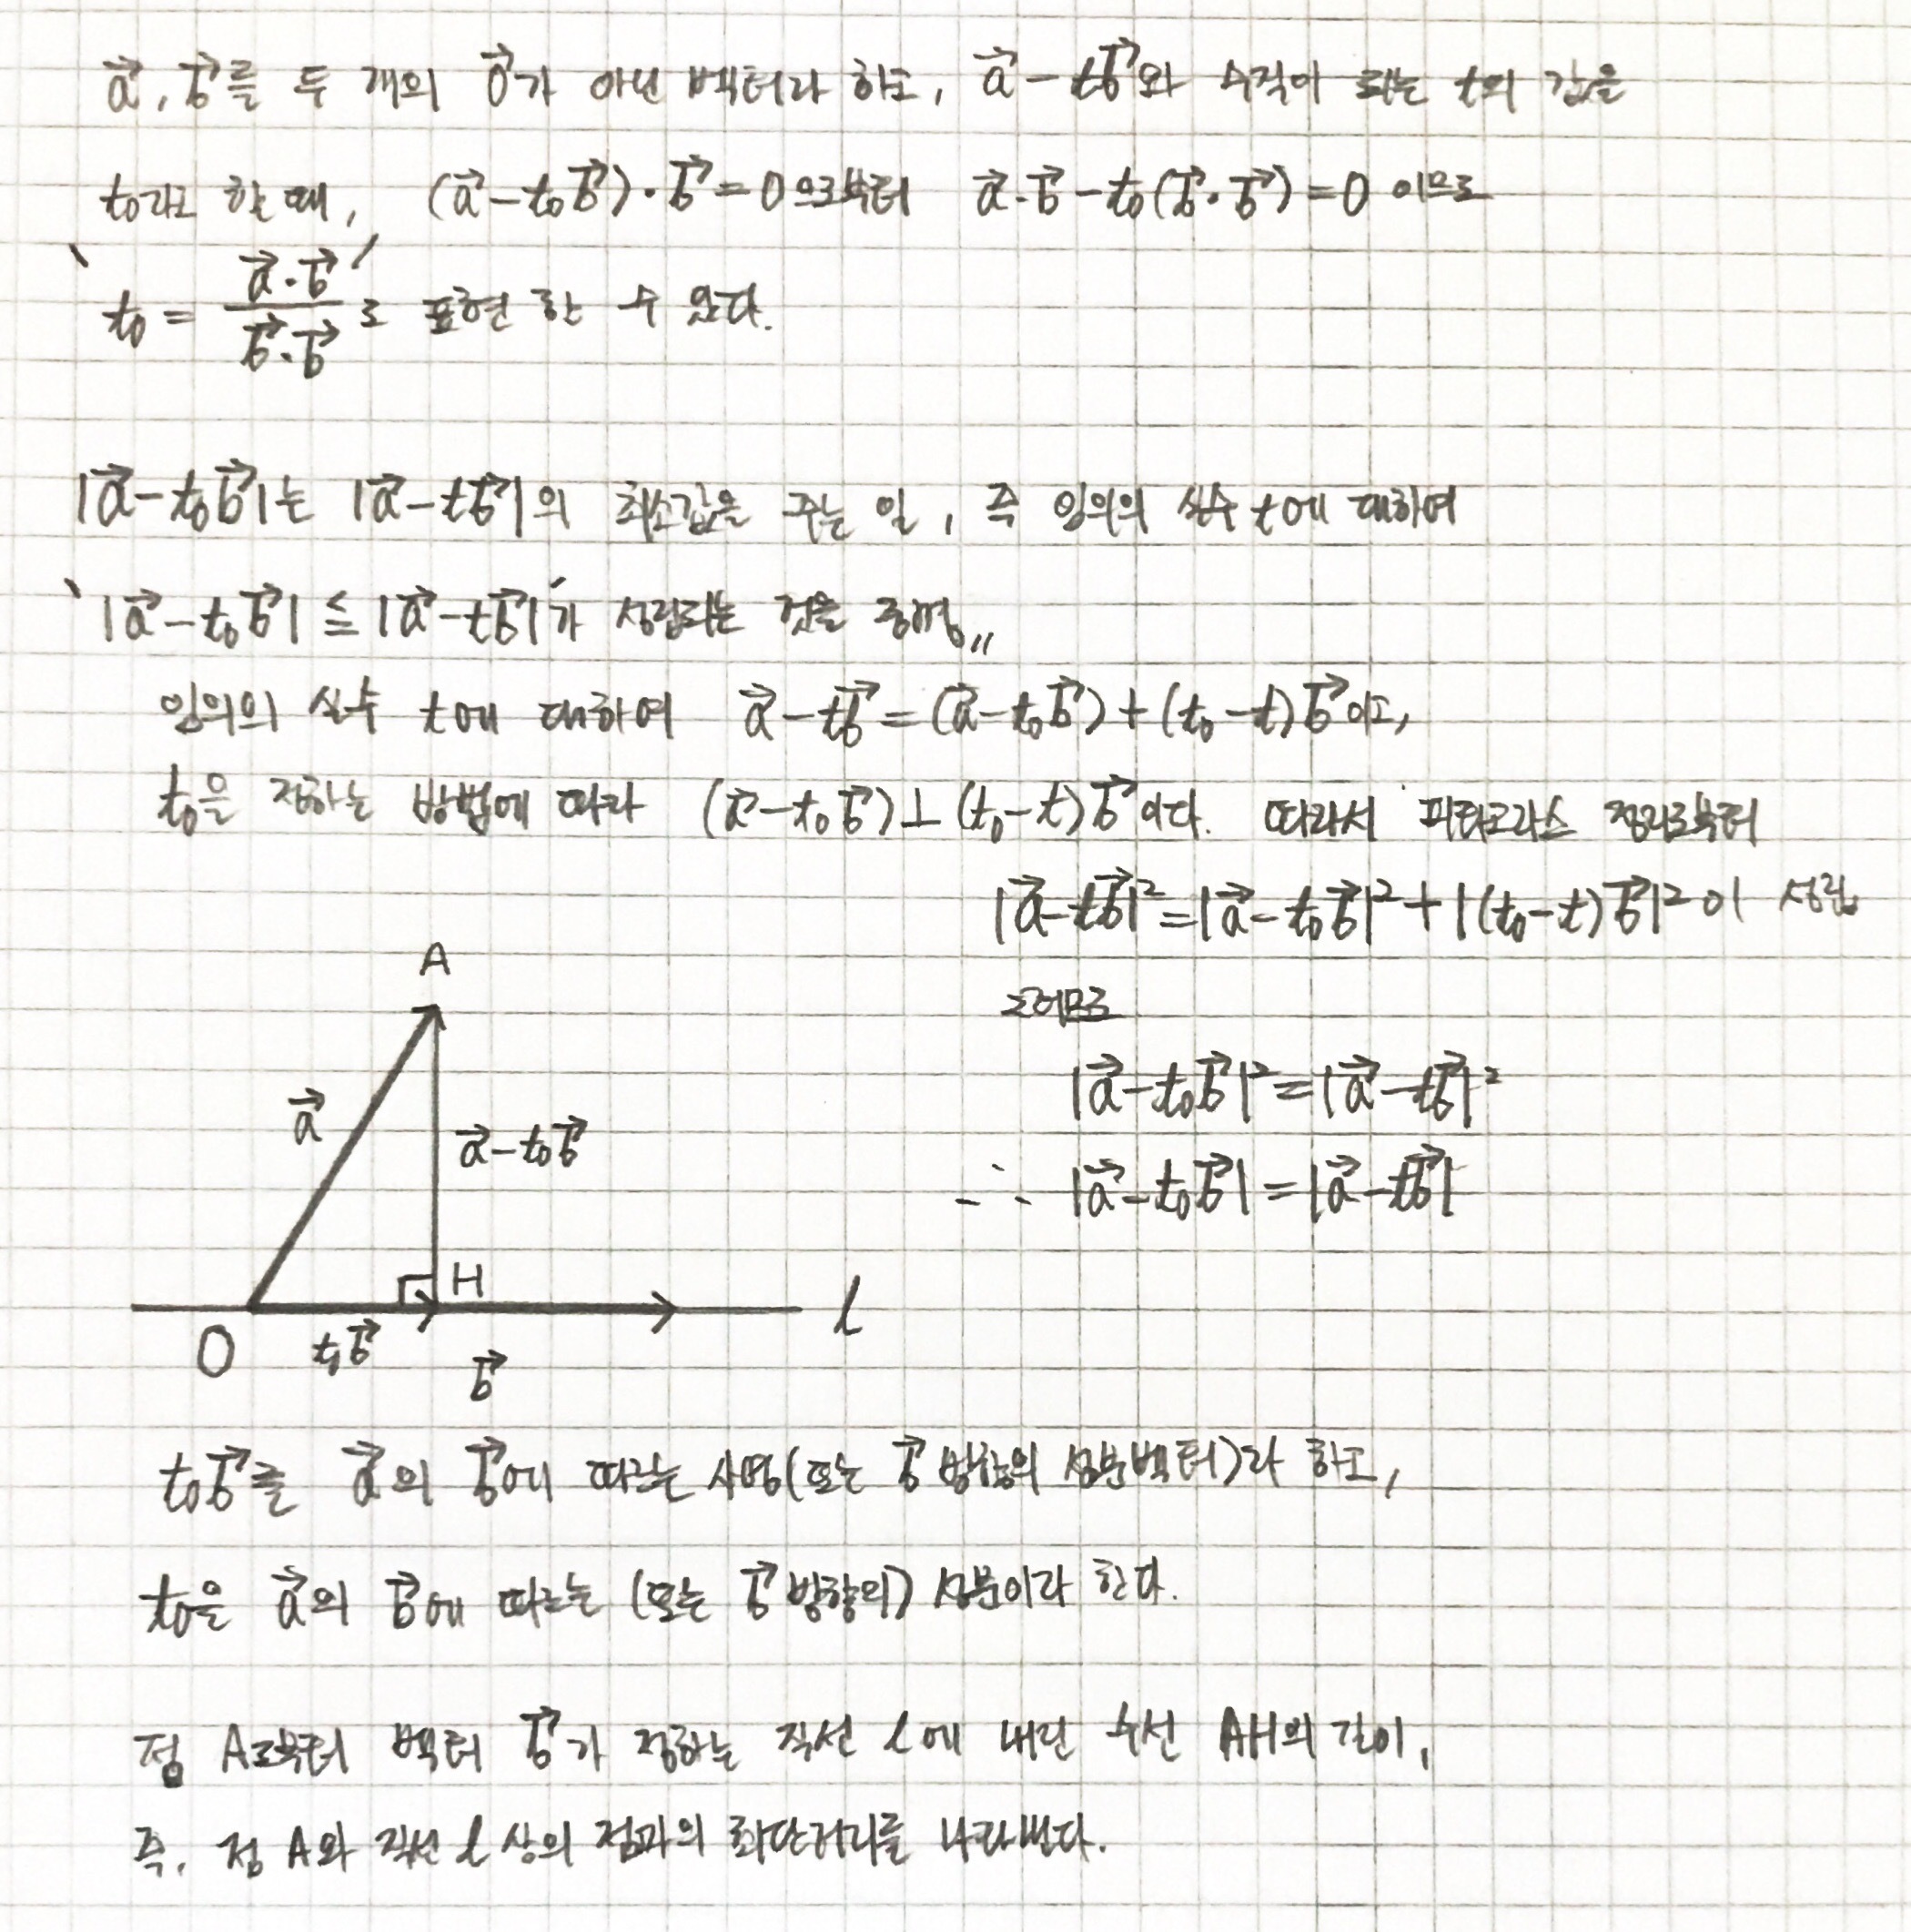 a⃗, b⃗를 두 개의 0⃗가 아닌 벡터라 하고, a⃗ - tb⃗와 수직이 되는 t의 값을
t₀라고 할 때, (a⃗ - t₀b⃗)·b⃗ = 0 으로부터 a⃗·b⃗ - t₀(b⃗·b⃗) = 0 이므로
t₀ = a⃗·b⃗ / b⃗·b⃗ 로 표현 할 수 있다.
|a⃗ - t₀b⃗|는 |a⃗ - tb⃗|의 최소값을 주는 일, 즉 임의의 실수 t에 대하여
` |a⃗ - t₀b⃗| ≦ |a⃗ - tb⃗| ´가 성립되는 것을 증명〃
임의의 실수 t에 대하여 a⃗ - tb⃗ = (a⃗ - t₀b⃗) + (t₀ - t)b⃗ 이고,
t₀을 정하는 방법에 따라 (a⃗ - t₀b⃗) ⊥ (t₀ - t)b⃗ 이다. 따라서 피타고라스 정리로부터
|a⃗ - tb⃗|² = |a⃗ - t₀b⃗|² + |(t₀ - t)b⃗|² 이 성립
그러므로
|a⃗ - t₀b⃗|² = |a⃗ - tb⃗|²
∴ |a⃗ - t₀b⃗| = |a⃗ - tb⃗|
A
a⃗
a⃗ - t₀b⃗
H
l
O
t₀b⃗
b⃗
t₀b⃗를 a⃗의 b⃗에 따르는 사영(또는 b⃗ 방향의 성분벡터)라 하고,
t₀을 a⃗의 b⃗에 따르는 (또는 b⃗ 방향의) 성분이라 한다.
점 A로부터 벡터 b⃗가 정하는 직선 l에 내린 수선 AH의 길이,
즉, 점 A와 직선 l 상의 점과의 최단거리를 나타낸다.